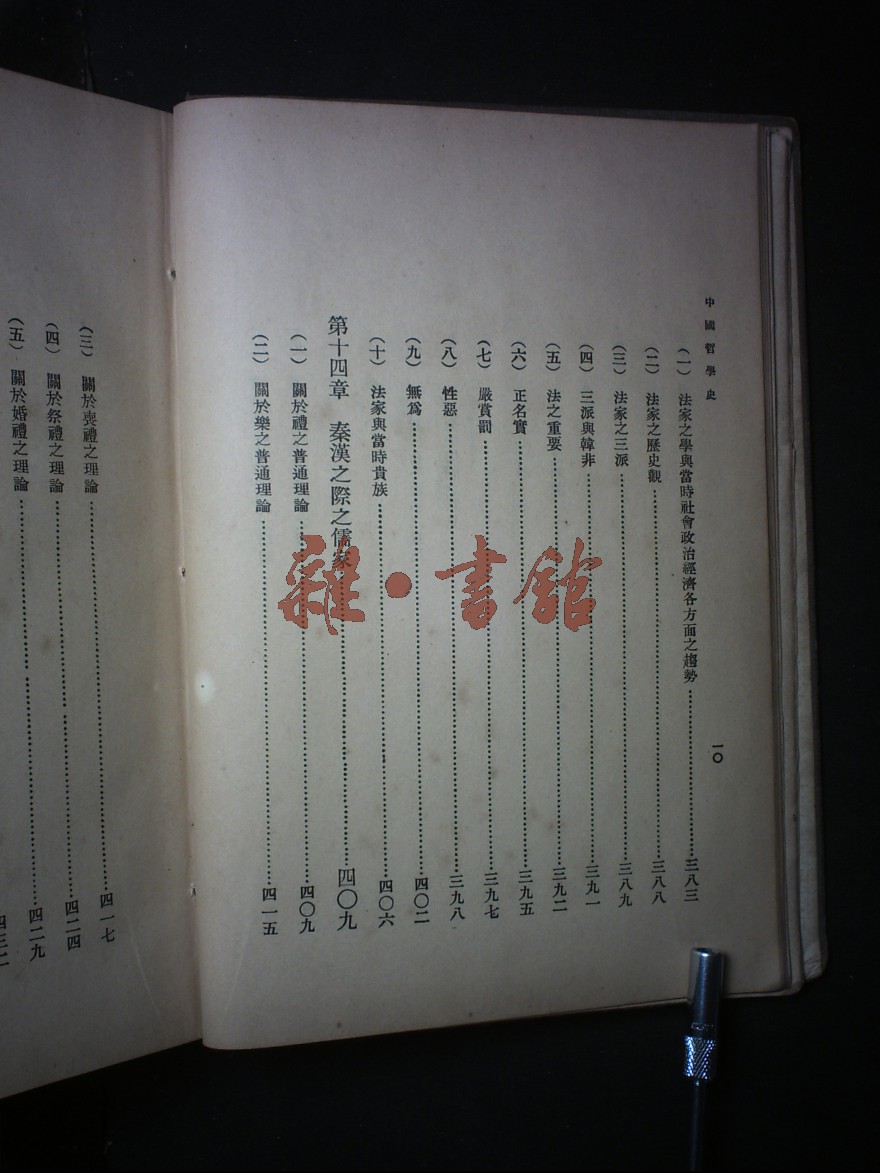 中國哲學史
一〇
（一）法家之學與當時社會政治經濟各方面之趨勢……三八三
（二）法家之歷史觀……三八八
（三）法家之三派……三八九
（四）三派與韓非……三九一
（五）法之重要……三九二
（六）正名實……三九五
（七）嚴賞罰……三九七
（八）性惡……三九八
（九）無爲……四〇二
（十）法家與當時貴族……四〇六
第十四章 秦漢之際之儒家……四〇九
（一）關於禮之普通理論……四〇九
（二）關於樂之普通理論……四一五
（三）關於喪禮之理論……四一七
（四）關於祭禮之理論……四二四
（五）關於婚禮之理論……四二九
雜·書館